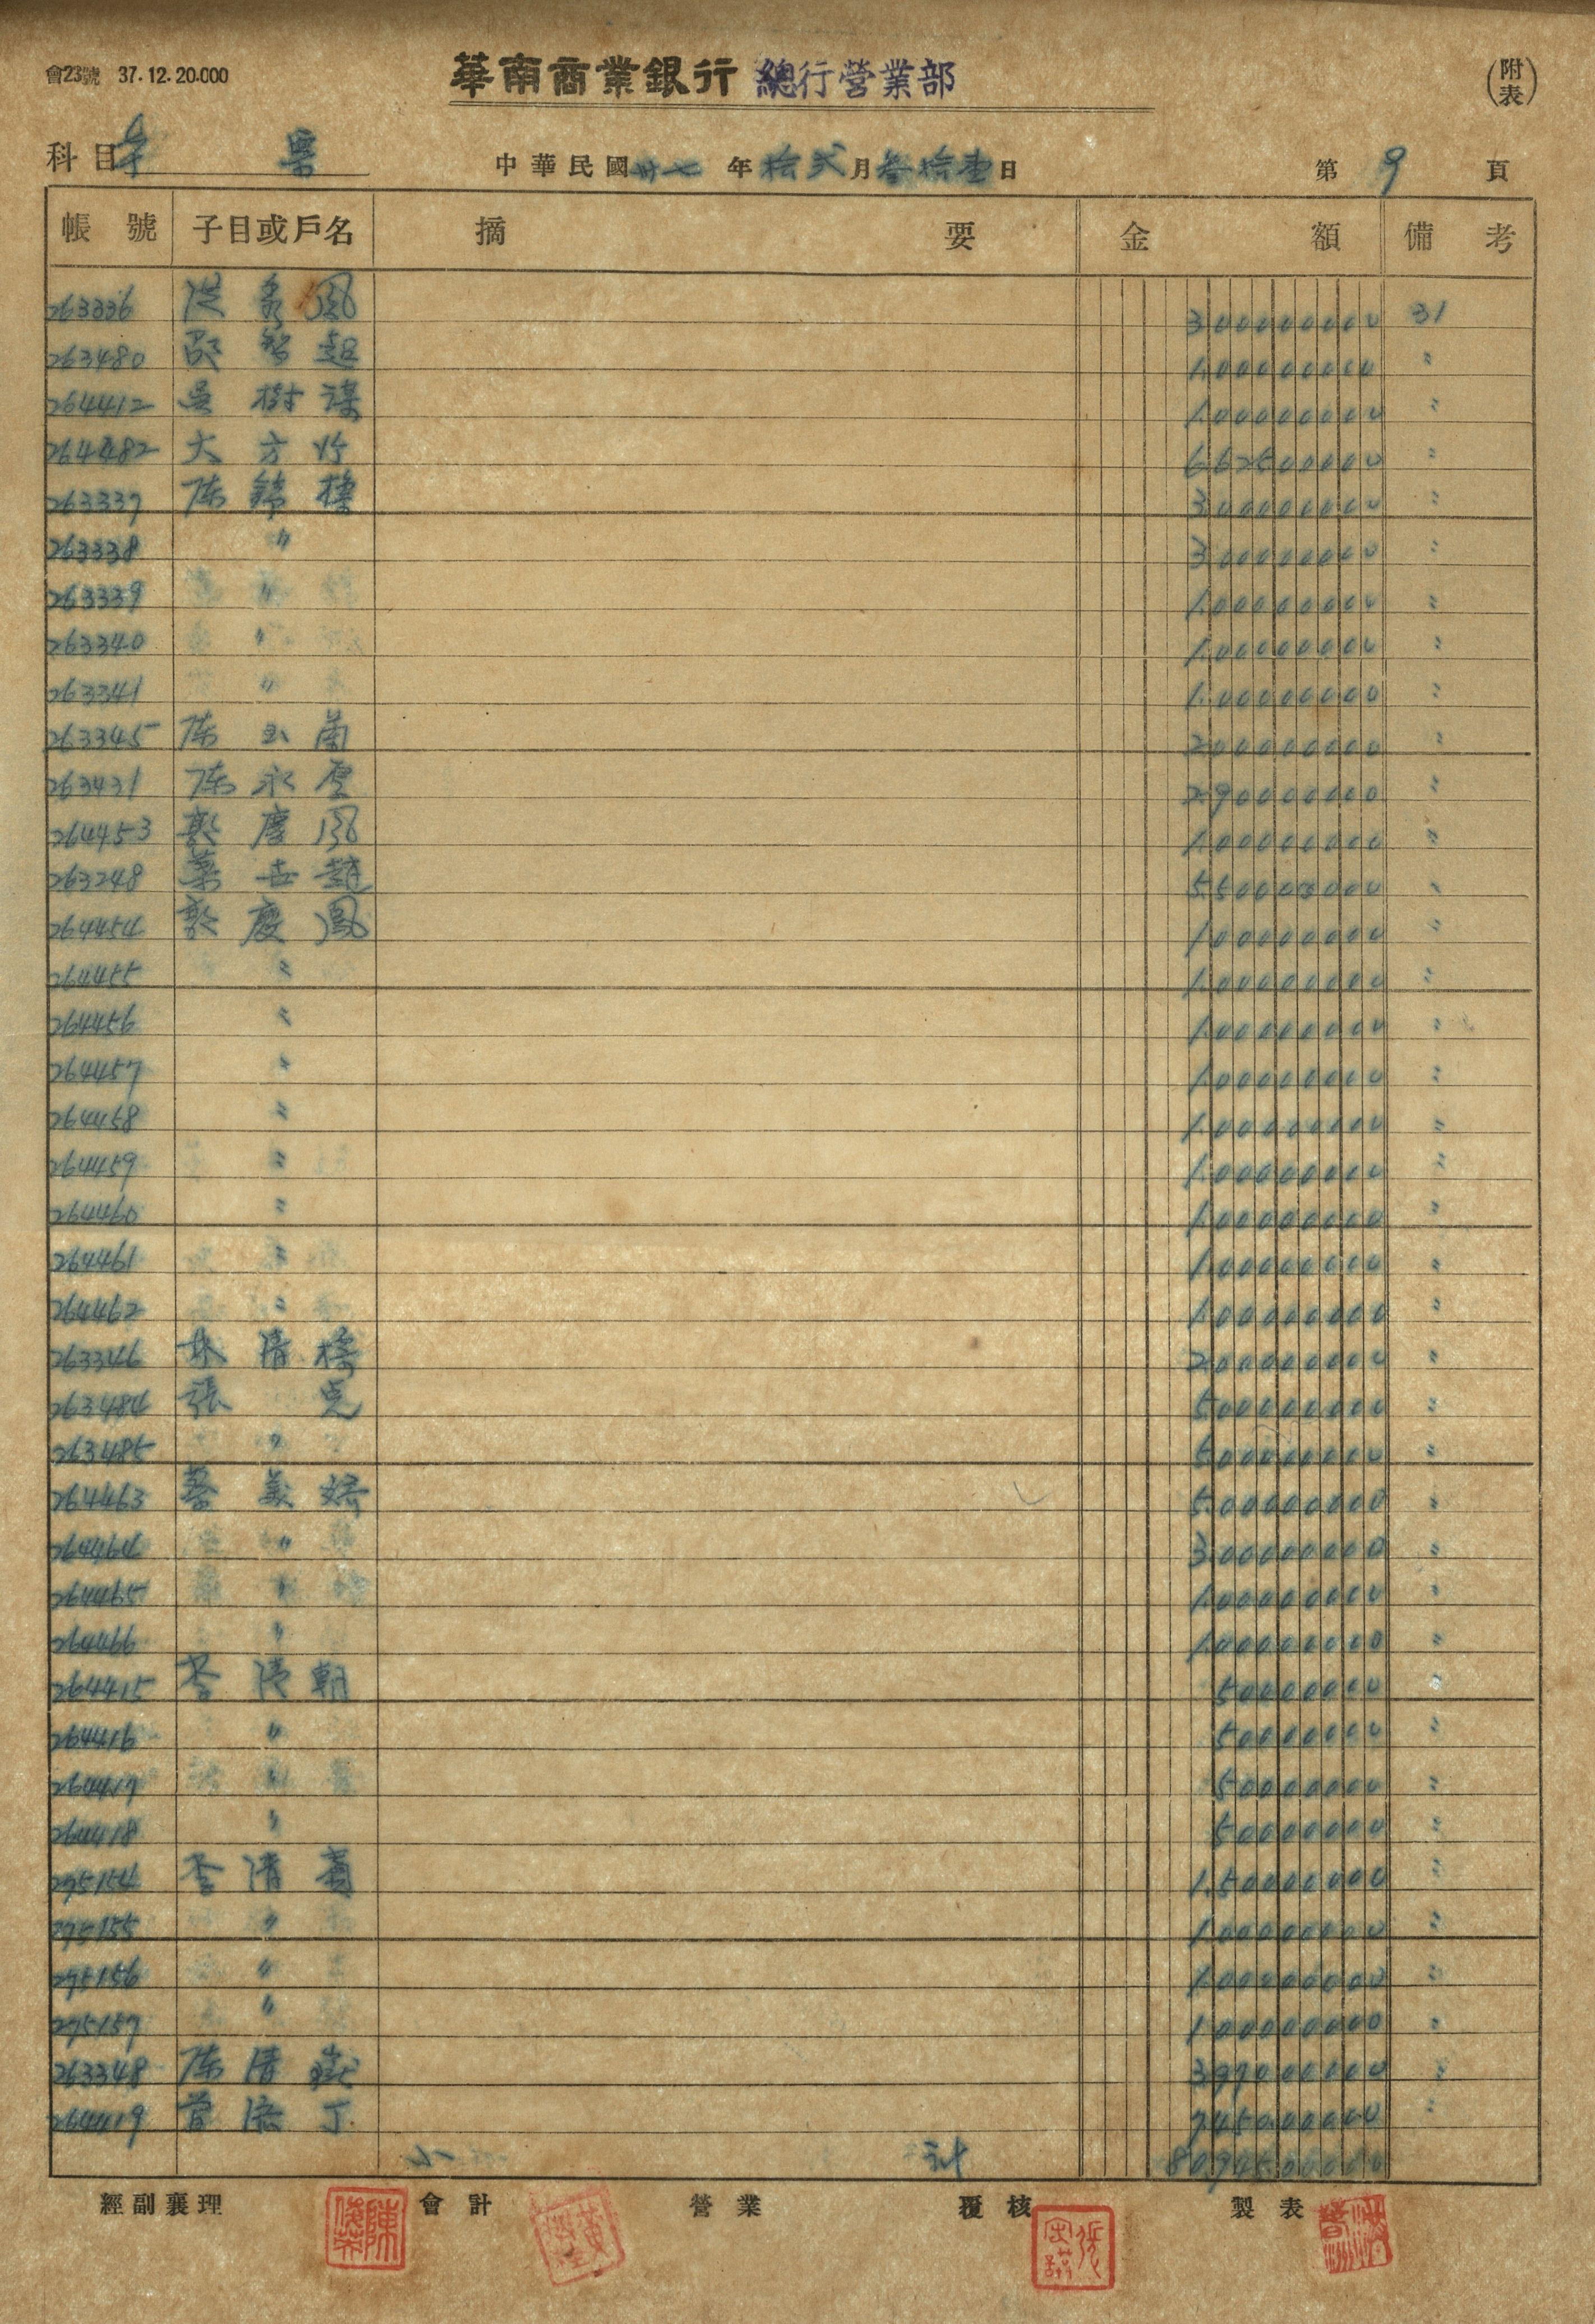 會23號 37.12.20.000
華南商業銀行 總行營業部
(附表)
科目 本 票
中華民國卅七年拾弍月叁拾壹日
第9頁
帳號 子目或戶名 摘要 金額 備考
263336 洪秀鳳 3000000.00 31
263480 邵智超 1.000000.00 〃
264412 吳樹謀 1.000000.00 〃
264482 大方行 6625000.00 〃
263337 陈錦樓 3.000000.00 〃
263338 〃 3000000.00 〃
263339 〃 1.000000.00 〃
263340 〃 1.000000.00 〃
263341 〃 1.000000.00 〃
263345 陈玉蘭 2000000.00 〃
263431 陈永雲 2.900000.00 〃
264453 郭慶鳳 1.000000.00 〃
263248 葉世趕 5500000.00 〃
264454 郭慶鳳 1000000.00 〃
264455 〃 1.000000.00 〃
264456 〃 1.000000.00 〃
264457 〃 1000000.00 〃
264458 〃 1.000000.00 〃
264459 〃 1.000000.00 〃
264460 〃 1.000000.00 〃
264461 〃 1.000000.00 〃
264462 〃 1.000000.00 〃
263346 林清樓 2.000000.00 〃
263484 張克 5.000000.00 〃
263485 〃 5.000000.00 〃
264463 蔡美 5.000000.00 〃
264464 〃 3.000000.00 〃
264465 〃 1.000000.00 〃
264466 〃 1.000000.00 〃
264415 李清朝 500000.00 〃
264416 〃 500000.00 〃
264417 〃 500000.00 〃
264418 〃 500000.00 〃
275154 李清 1.500000.00 〃
275155 〃 1.000000.00 〃
275156 〃 1.000000.00 〃
275157 〃 1000000.00 〃
263348 陈清 3970000.00 〃
264419 曾添丁 7.450.000.00 〃
小計 80,945.000.00
經副襄理 會計 營業 覆核 製表